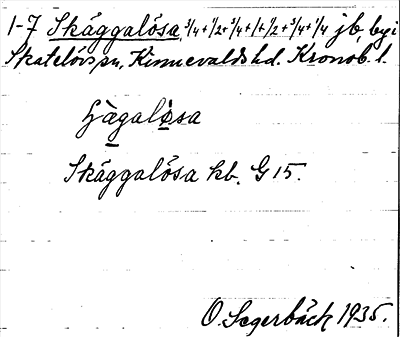 1-7 Skäggalösa, 3/4+1/2+3/4+1+1/2+3/4+1/4 jb, by i
Skatelövs sn, Kinnevalds hd. Kronob. l.
hägalösa
Skäggalösa kb. G 15.
O. Segerbäck 1935.